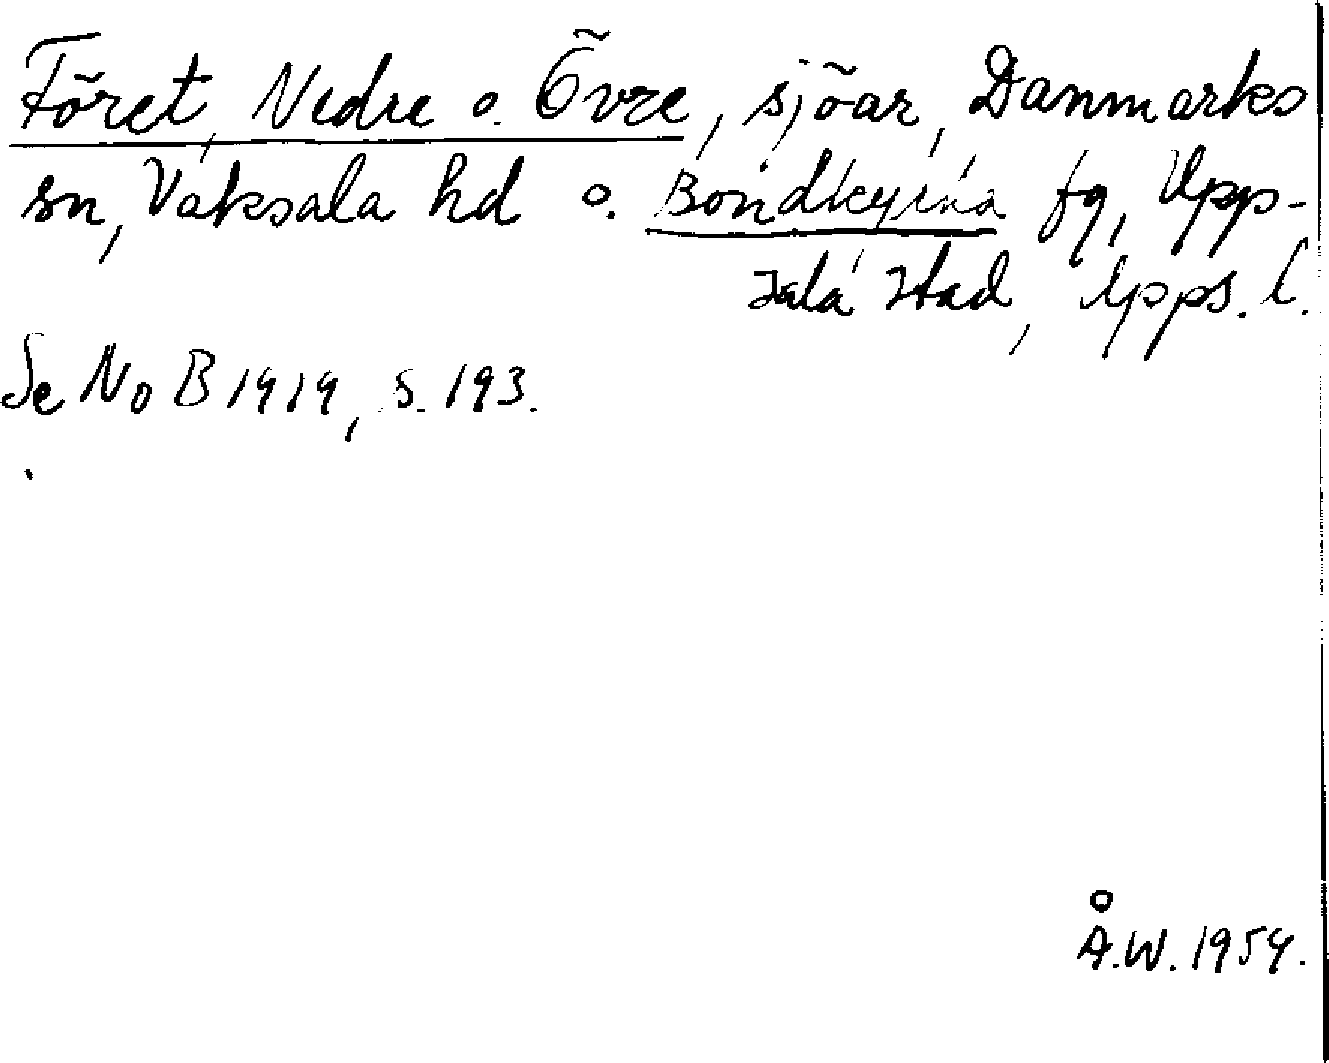 Föret, Nedre o. Övre, sjöar, Danmarks
sn, Vaksala hd o. Bondkyrka fg, Upp-
sala stad, Upps. l.
Se NoB 1919, s. 193.
Å.W. 1954.